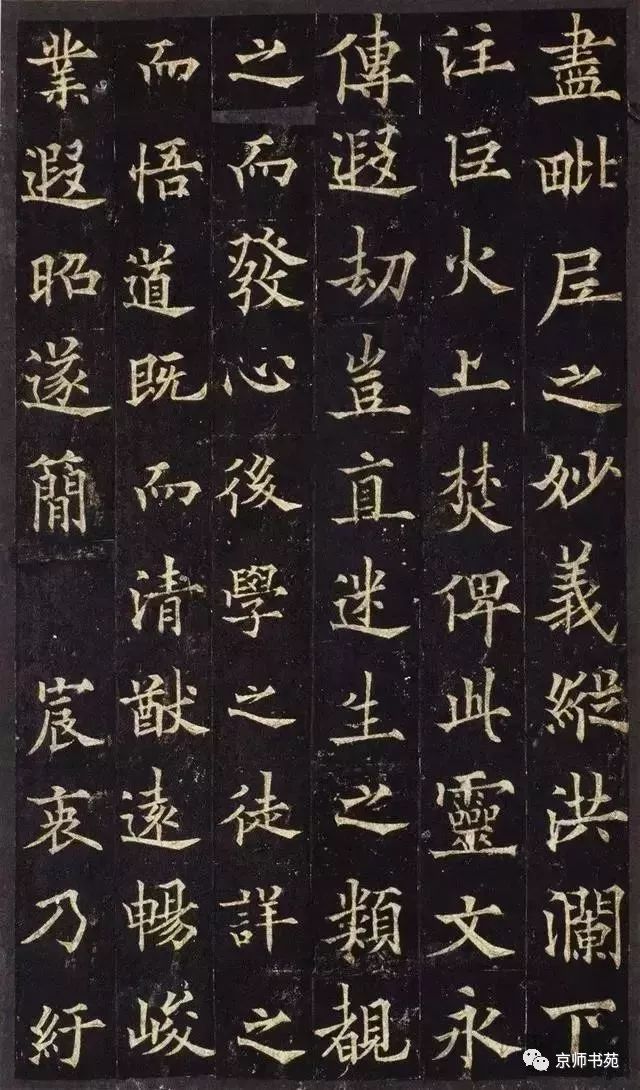 盡毗层之妙義縱洪瀾下
注巨火上焚俾此靈文永
傳遐劫豈直迷生之類覩
之而發心後學之徒詳之
而悟道既而清猷遠暢峻
業遐昭遂簡 宸衷乃紆
京师书苑